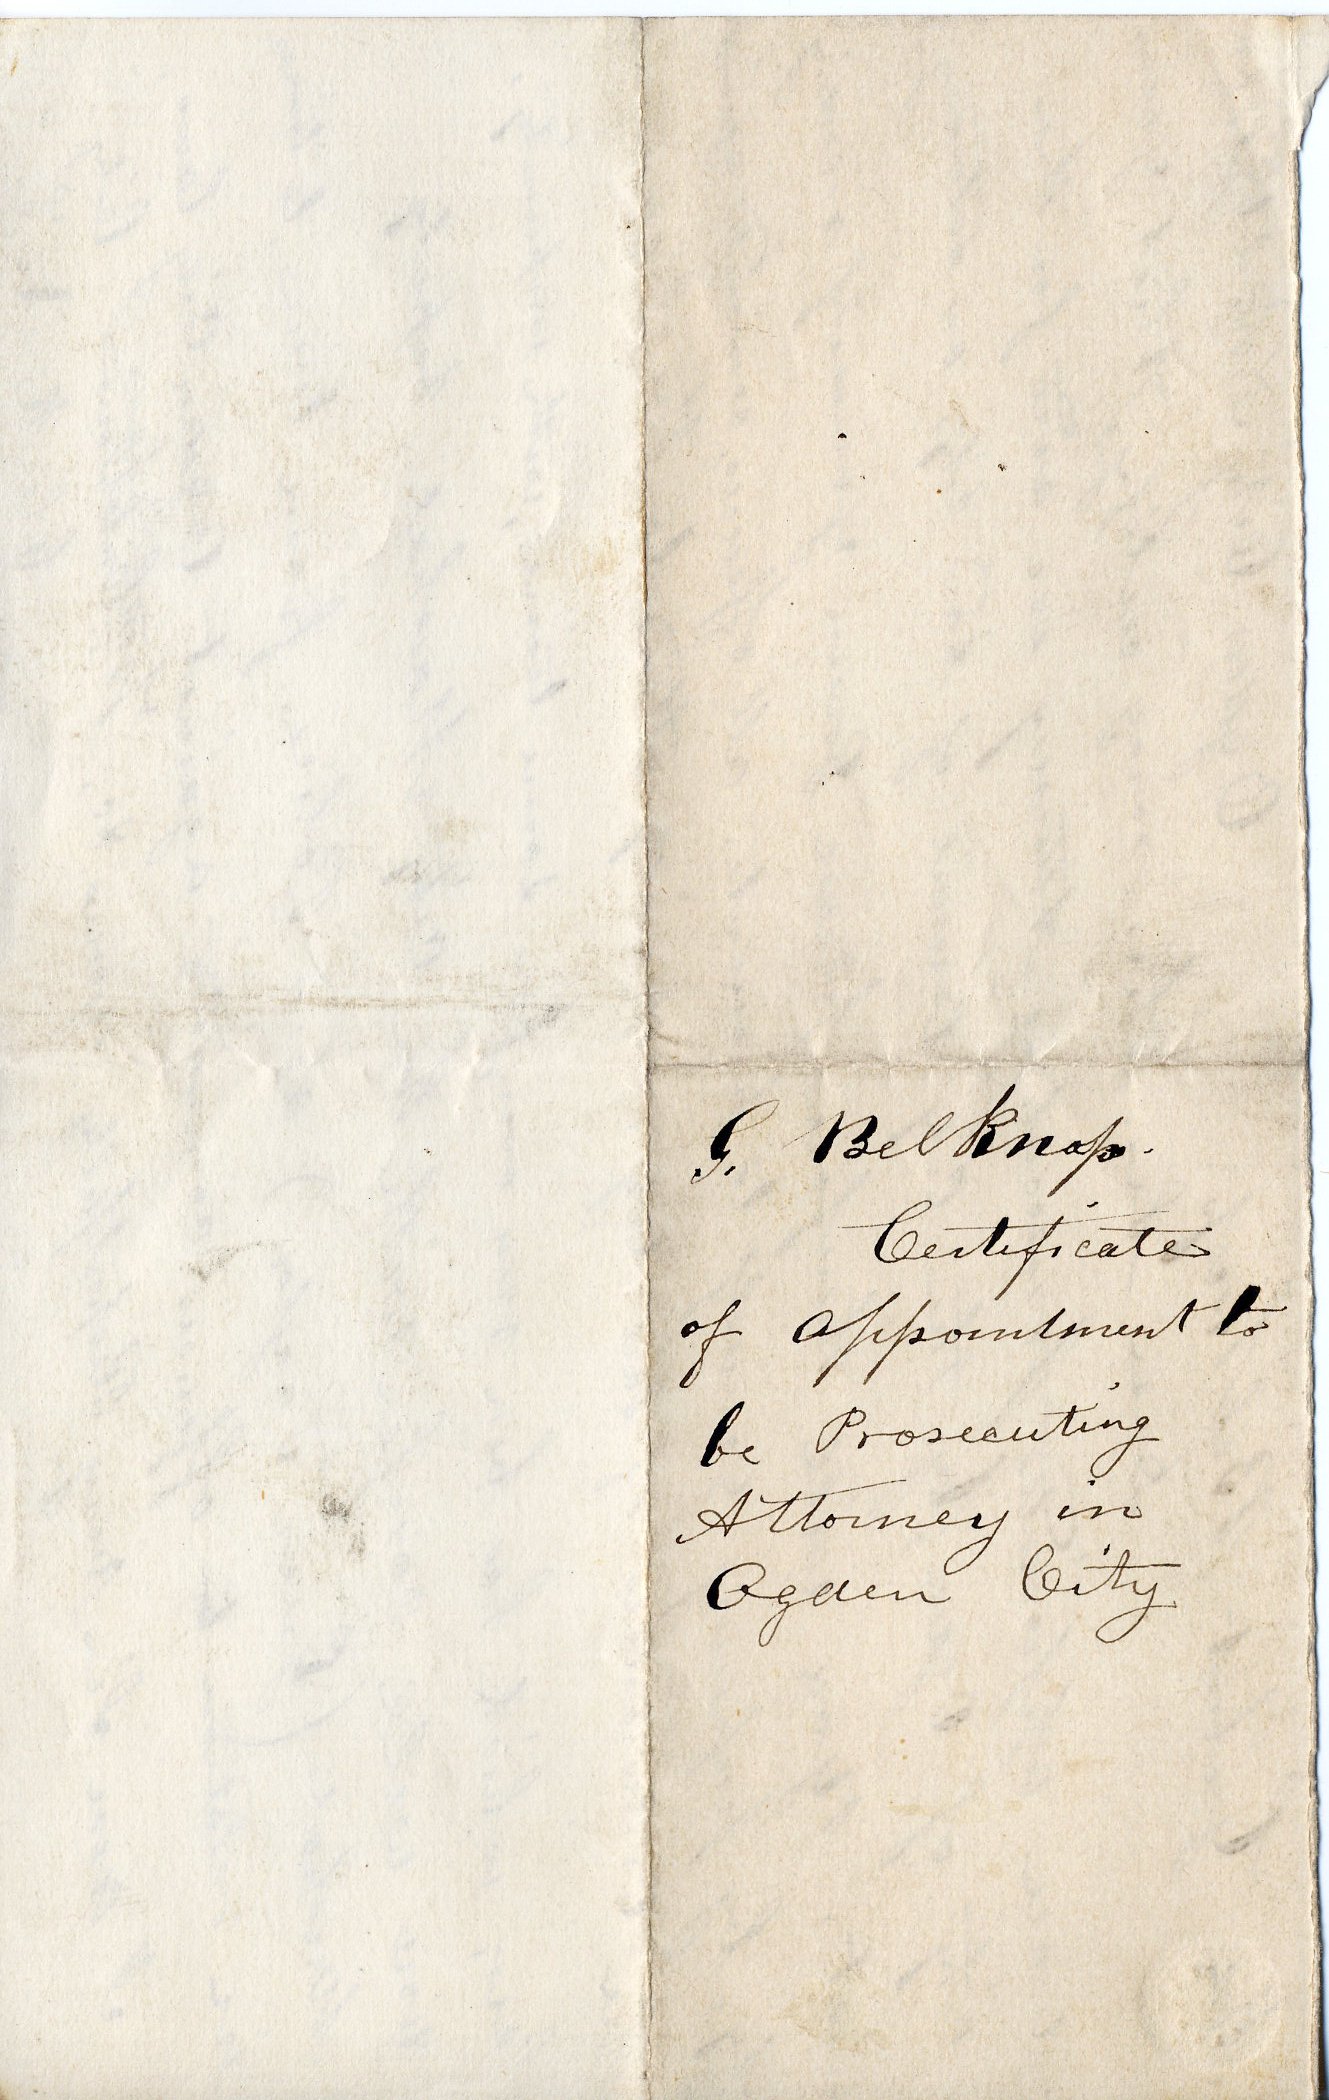 G. Belknap.
Certificate
of appointment to
be Prosecuting
Attorney in
Ogden City